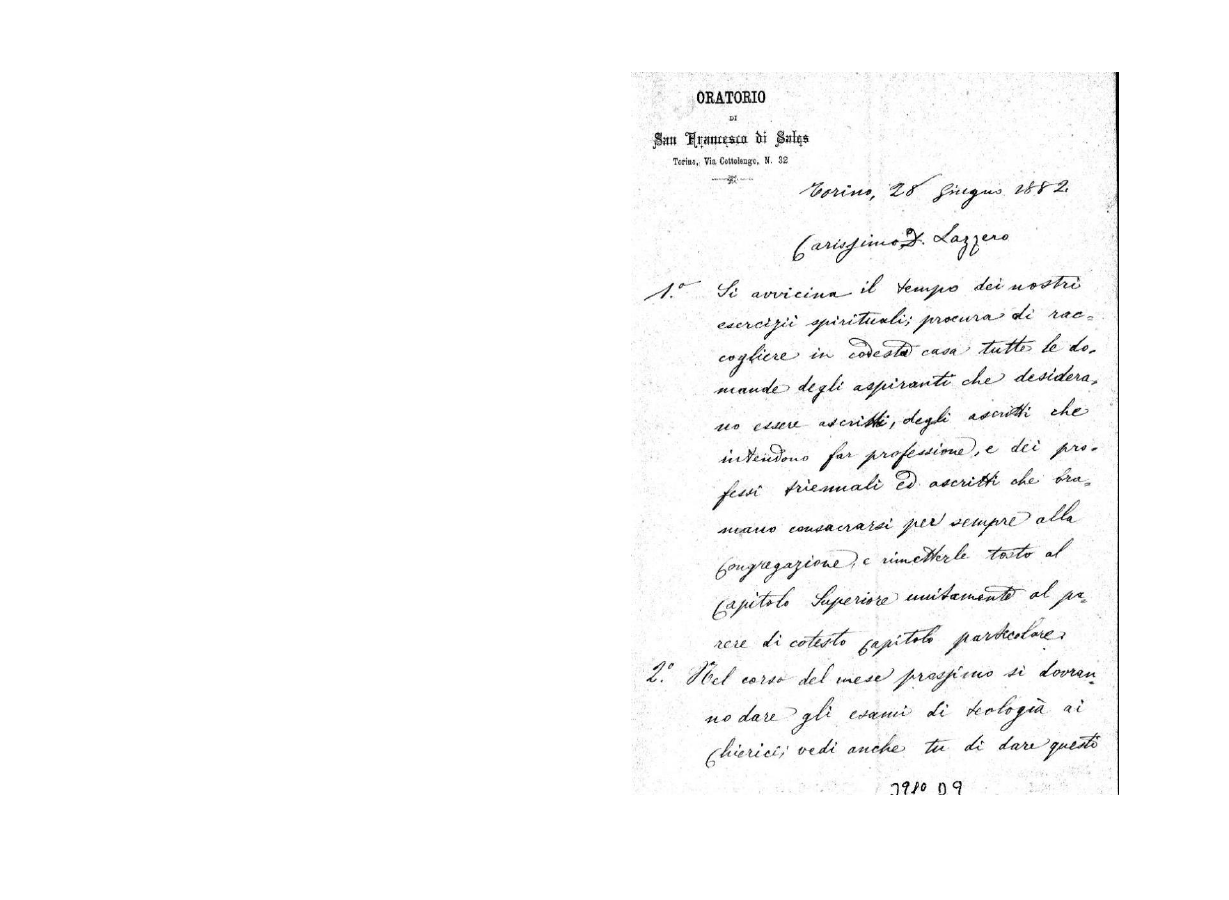 ORATORIO
DI
San Francesco di Sales
Torino, Via Cottolengo, N. 32
Torino, 28 Giugno 1882
Carissimo D. Lazzero
1.º Si avvicina il tempo dei nostri
esercizii spirituali; procura di rac=
cogliere in codesta casa tutte le do-
mande degli aspiranti che desidera-
no essere ascritti, degli ascritti che
intendono far professione, e dei pro-
fessi triennali ed ascritti che bra-
mano consacrarsi per sempre alla
Congregazione, e rimetterle tosto al
Capitolo Superiore unitamente al pa-
rere di cotesto Capitolo particolare.
2.º Nel corso del mese prossimo si dovran-
no dare gli esami di teologia ai
Chierici; vedi anche tu di dare questi
D9